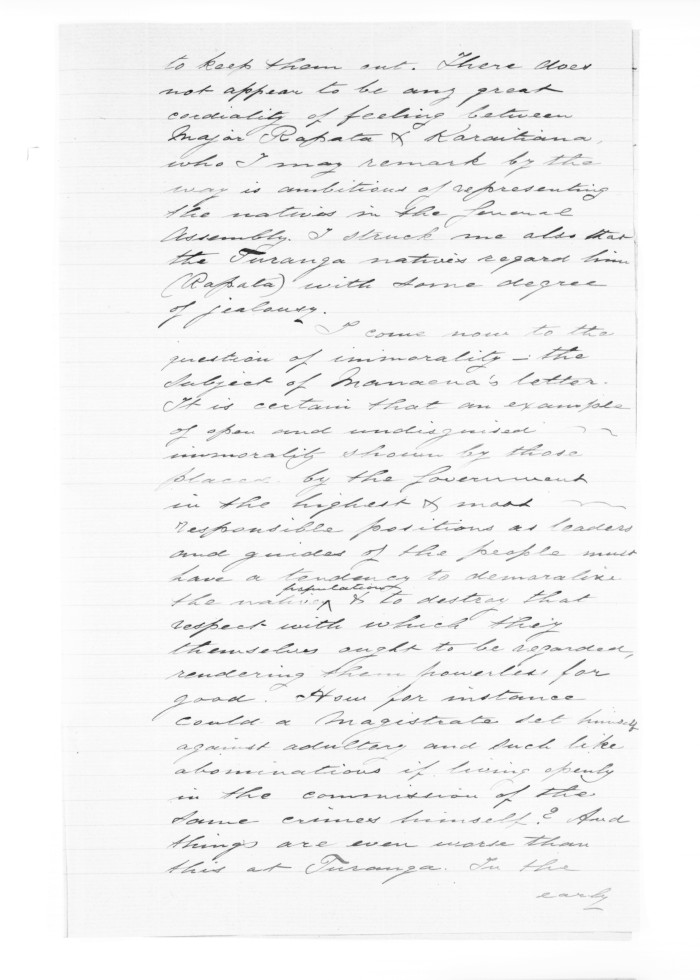 to keep them out. There does
not appear to be any great
cordiality of feeling between
Major Rapata & Karaitiana,
who I may remark by the
way is ambitious of representing
the natives in the General
Assembly. I struck me also that
the Turanga natives regard him
(Rapata) with some degree
of jealousy.
I come now to the
question of immorality – the
subject of Manaena's letter.
It is certain that an example
of open and undisguised
immorality shown by those
placed by the Government
in the highest & most
responsible positions as leaders
and guides of the people must
have a tendency to demoralize
population
the native ^ & to destroy that
respect with which they
themselves ought to be regarded,
rendering them powerless for
good. How for instance
could a Magistrate set himself
against adultery and such like
abominations if living openly
in the commission of the
same crimes himself? And
things are even worse than
this at Turanga. In the
early